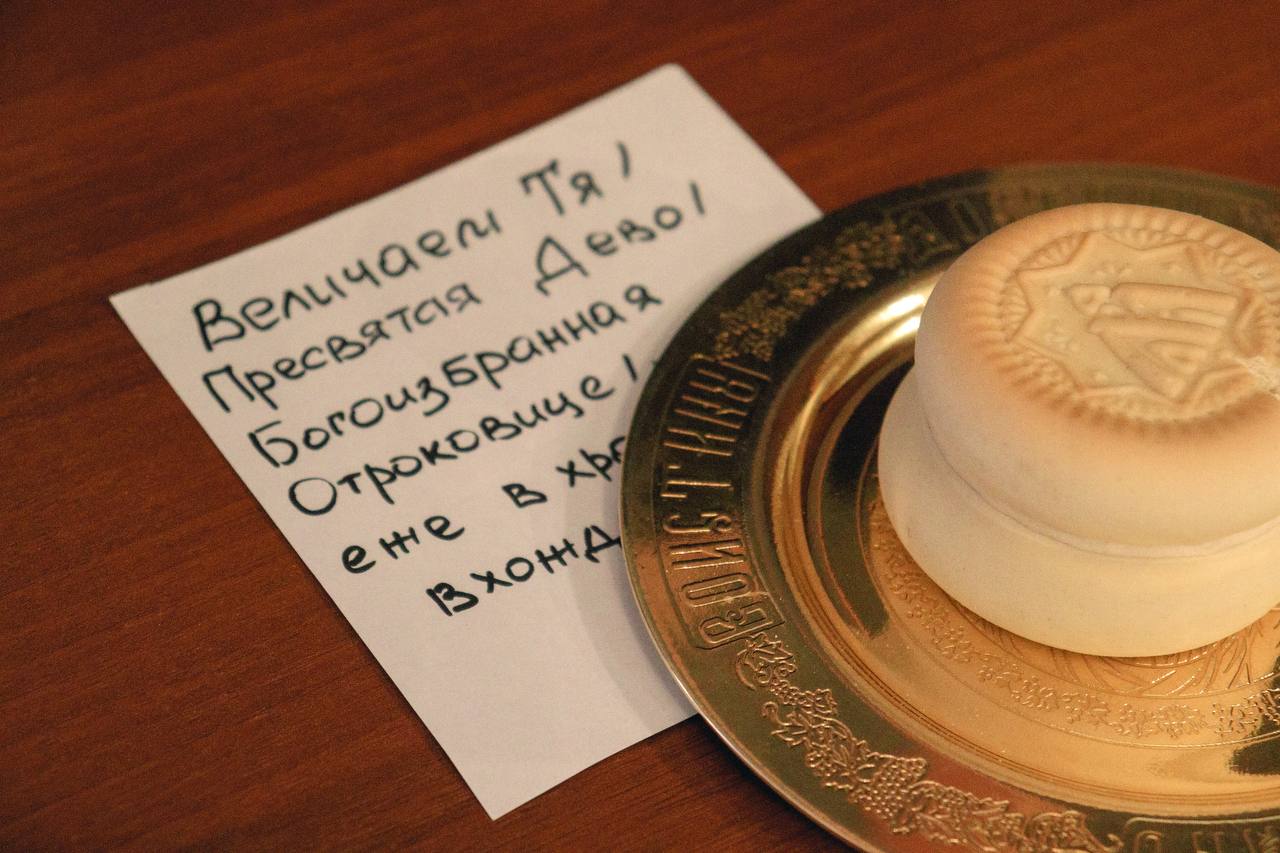 Величаем Тя,
Пресвятая Дево,
Богоизбранная
Отроковице,
еже в
ВОИСТИНУ